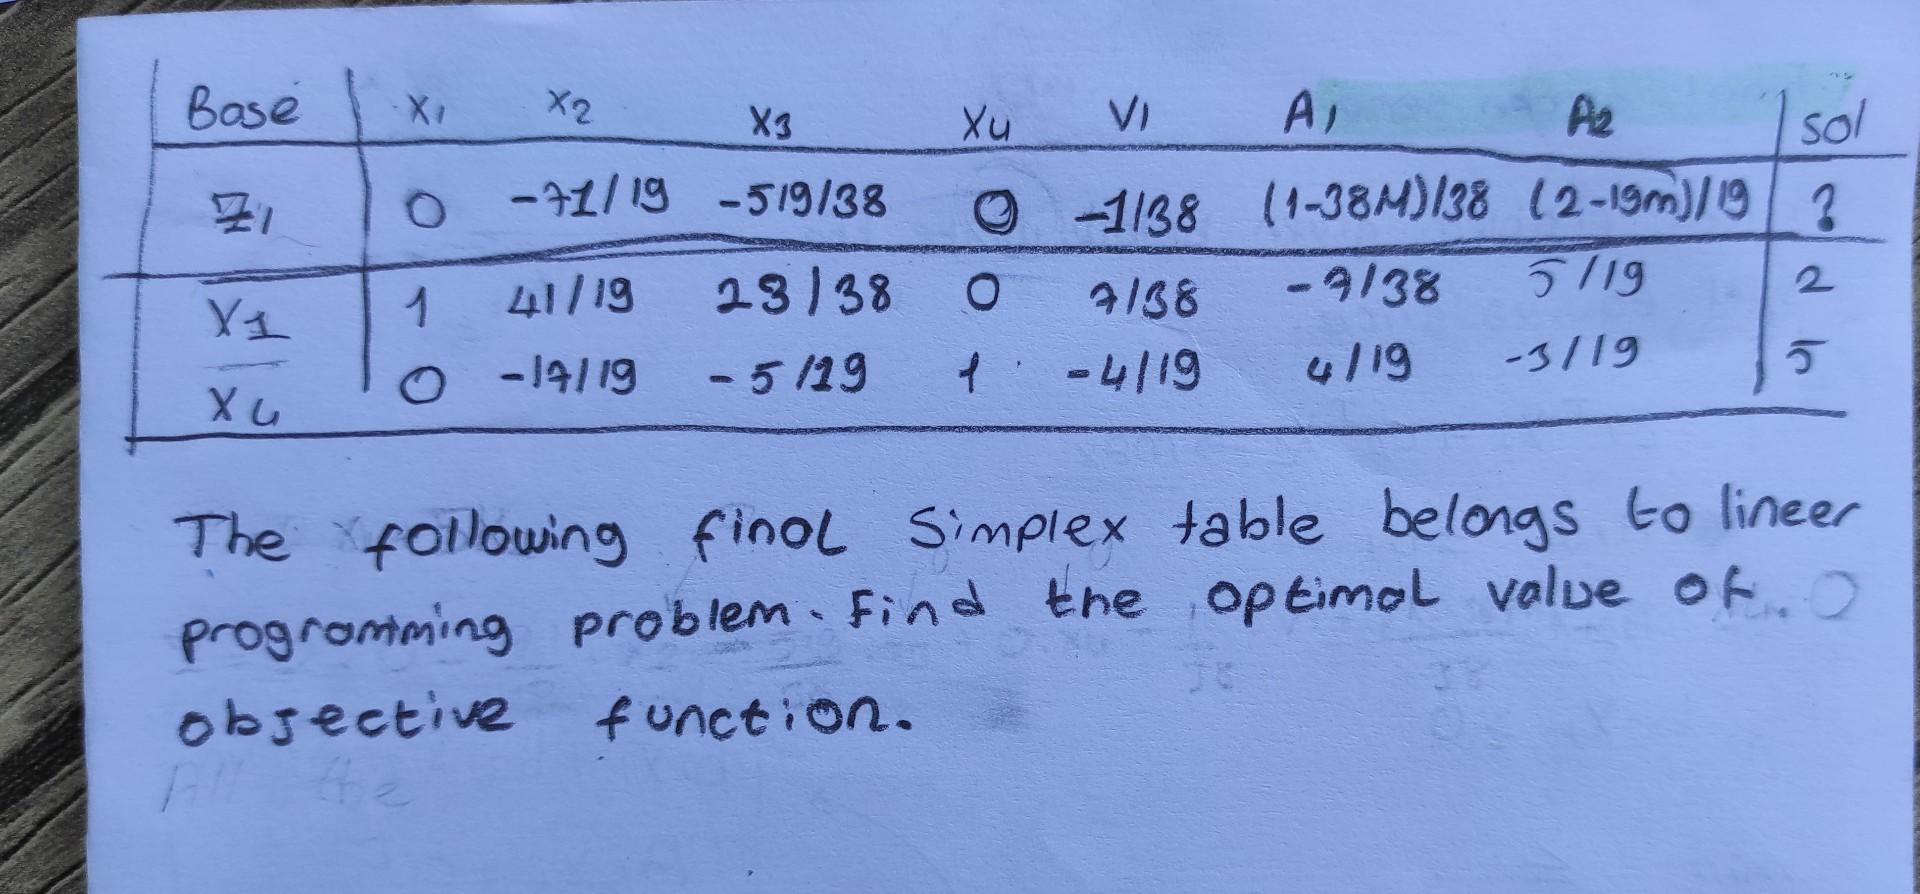 Base X1 X2 X3 X4 V1 A1 A2 sol
Z1 0 -71/19 -519/38 0 -1/38 (1-38M)/38 (2-19m)/19 ?
X1 1 41/19 23/38 0 7/38 -7/38 5/19 2
X4 0 -17/19 -5/19 1 -4/19 4/19 -3/19 5
The following final Simplex table belongs to lineer
programming problem. Find the optimal value of
obsective function.
All the